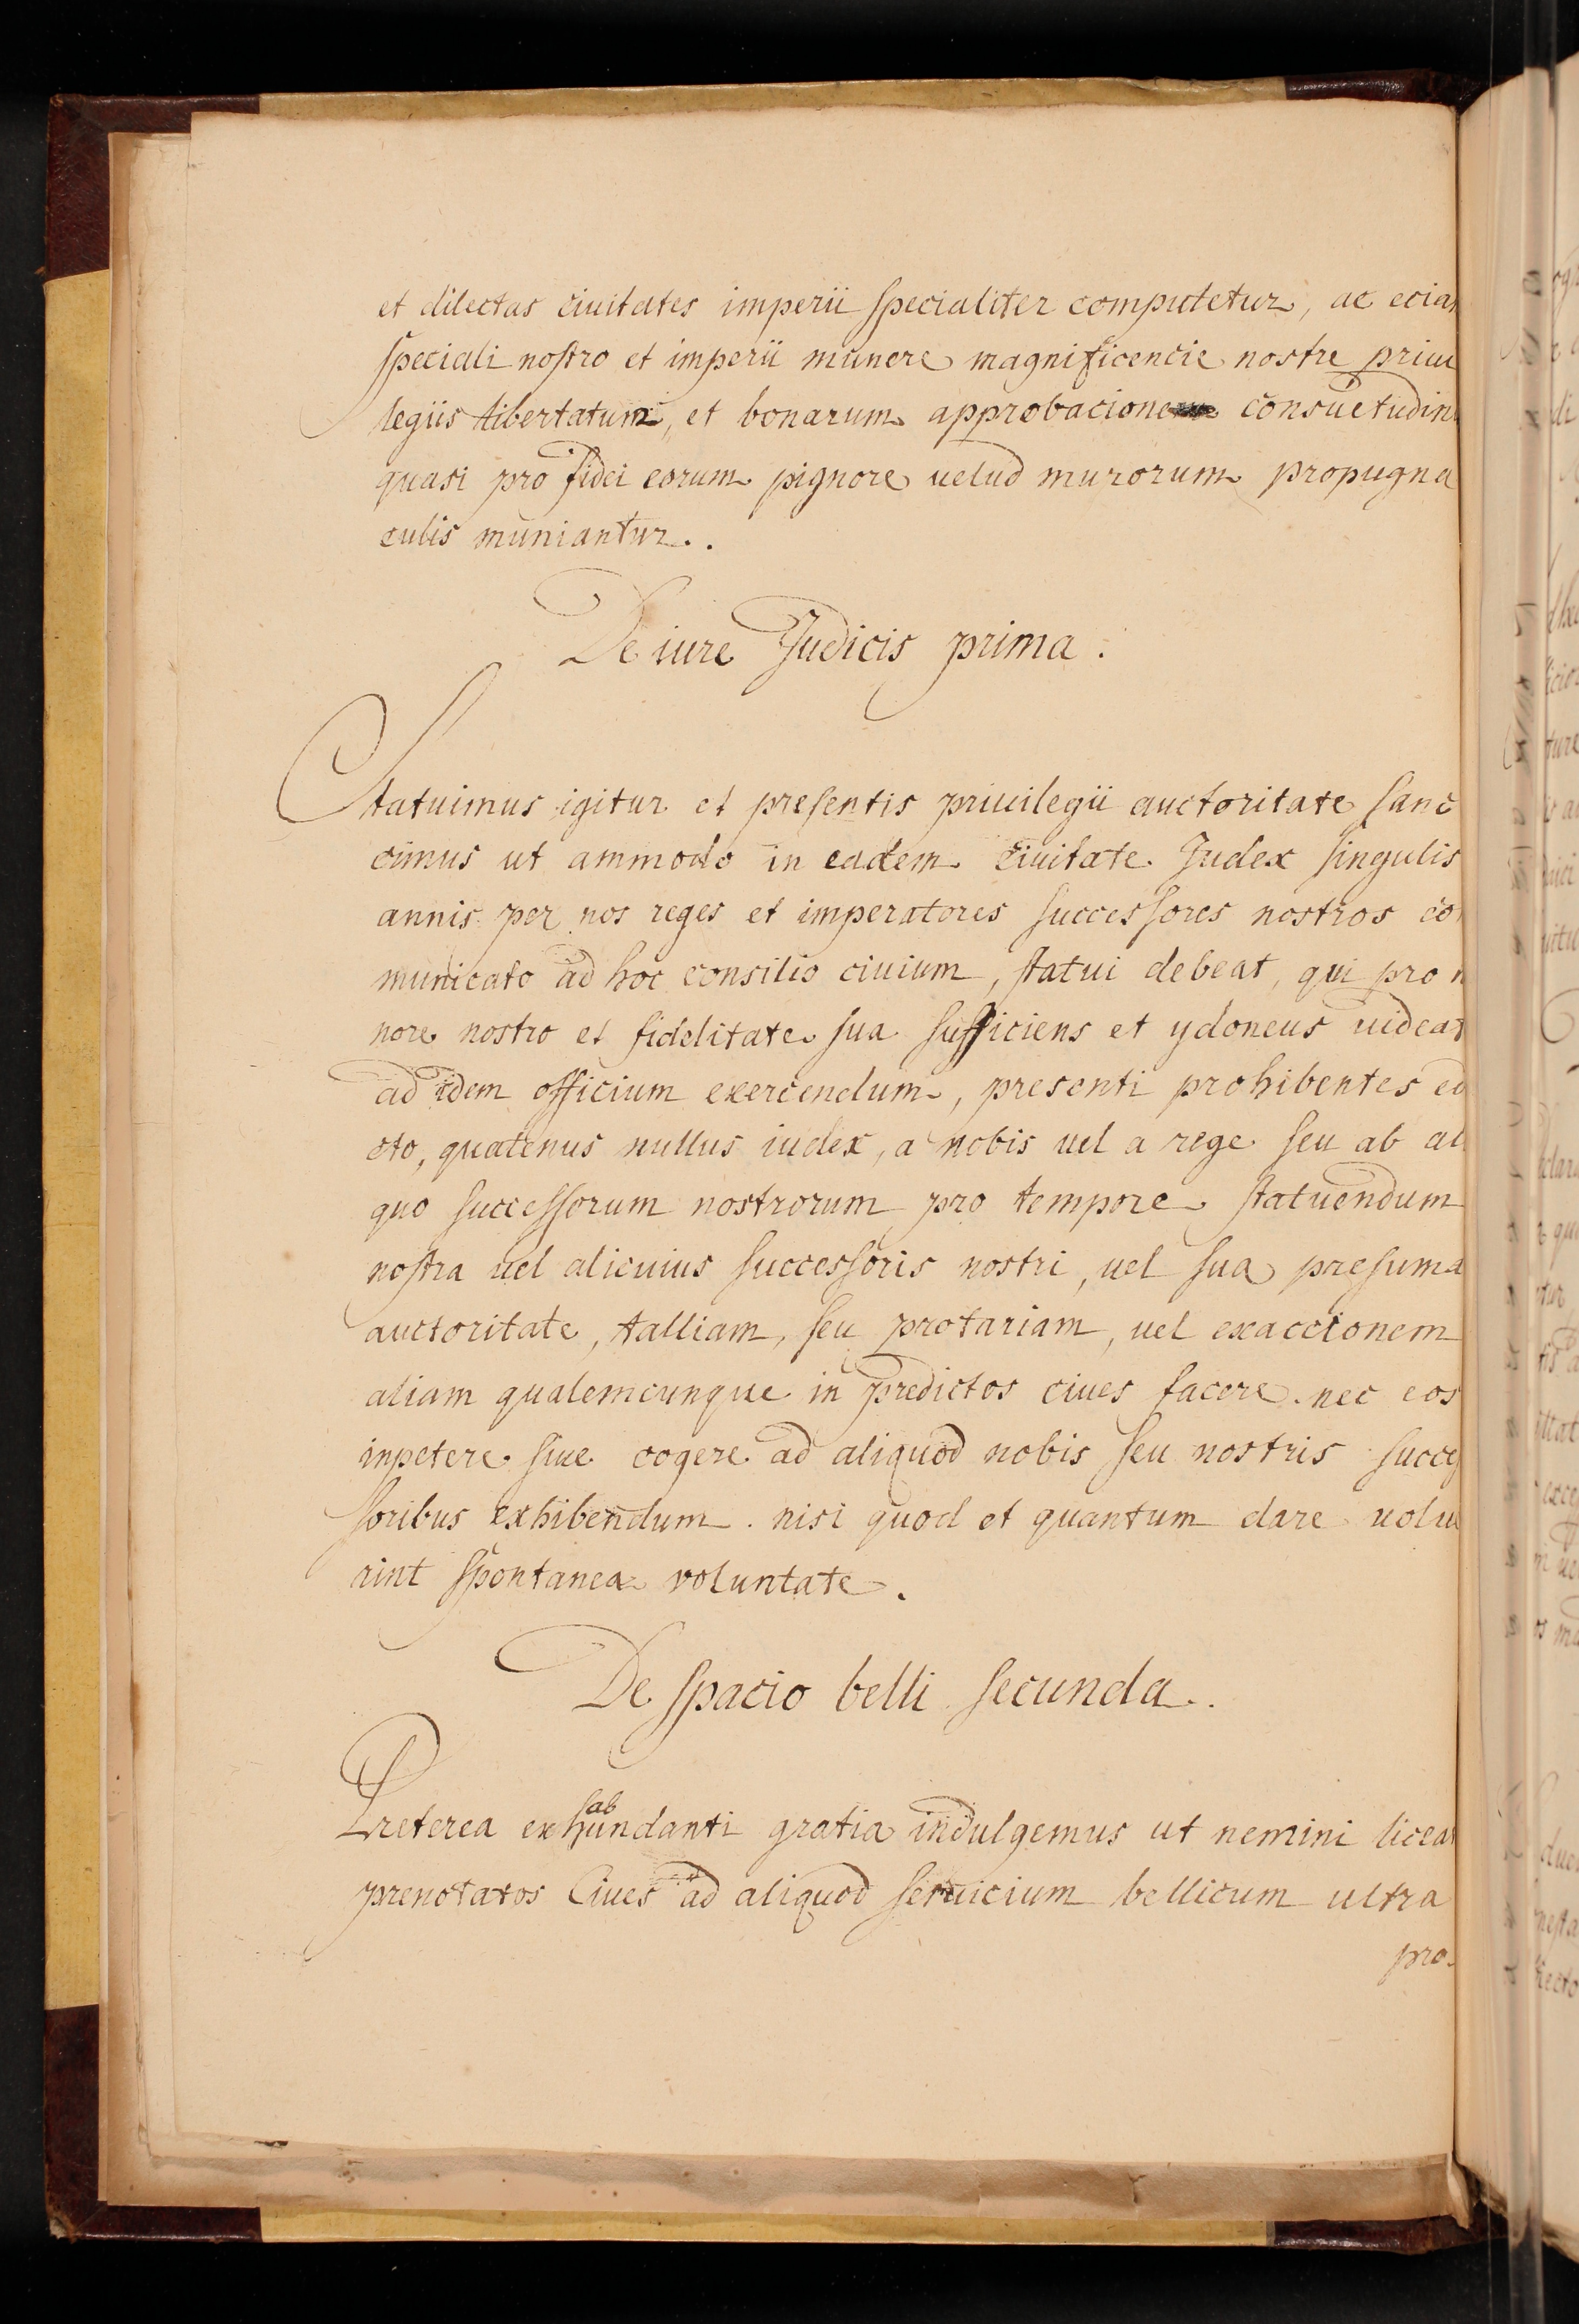 et dilectas ciuitates imperii specialiter computetur, ac eciam
speciali nostro et imperii munere magnificencie nostre priui
legiis libertatum, et bonarum approbacione consuetudin
quasi pro fidei eorum pignore uelud murorum propugna
culis muniantur..
De iure Judicis prima.
Statuimus igitur et presentis priuilegii auctoritate sanc
cimus ut ammodo in eadem ciuitate Judex singulis
annis per nos reges et imperatores successores nostros co
municato ad hoc consilio ciuium, statui debeat, qui pro
nore nostro et fidelitate sua sufficiens et ydoneus uideat
ad idem officium exercendum, presenti prohibentes edi
cto, quatenus nullus iudex, a nobis uel a rege seu ab ali
quo successorum nostrorum pro tempore statuendum
nostra uel alicuius successoris nostri, uel sua presuma
auctoritate, talliam, seu protariam, uel exaccionem
aliam qualemcunque in predictos ciues facere. nec eos
inpetere siue cogere ad aliquod nobis seu nostris succes
soribus exhibendum. nisi quod et quantum dare uolue
rint spontanea voluntate.
De spacio belli secunda..
Preterea ex habundanti gratia indulgemus ut nemini liceat
prenotatos Ciues ad aliquod seruicium bellicum ultra
pro.